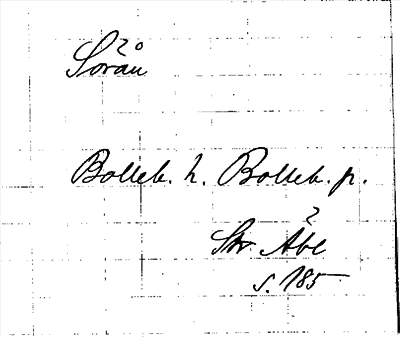 Sörån
Bolleb. h. Bolleb. p.
Str. Äbl
s. 185